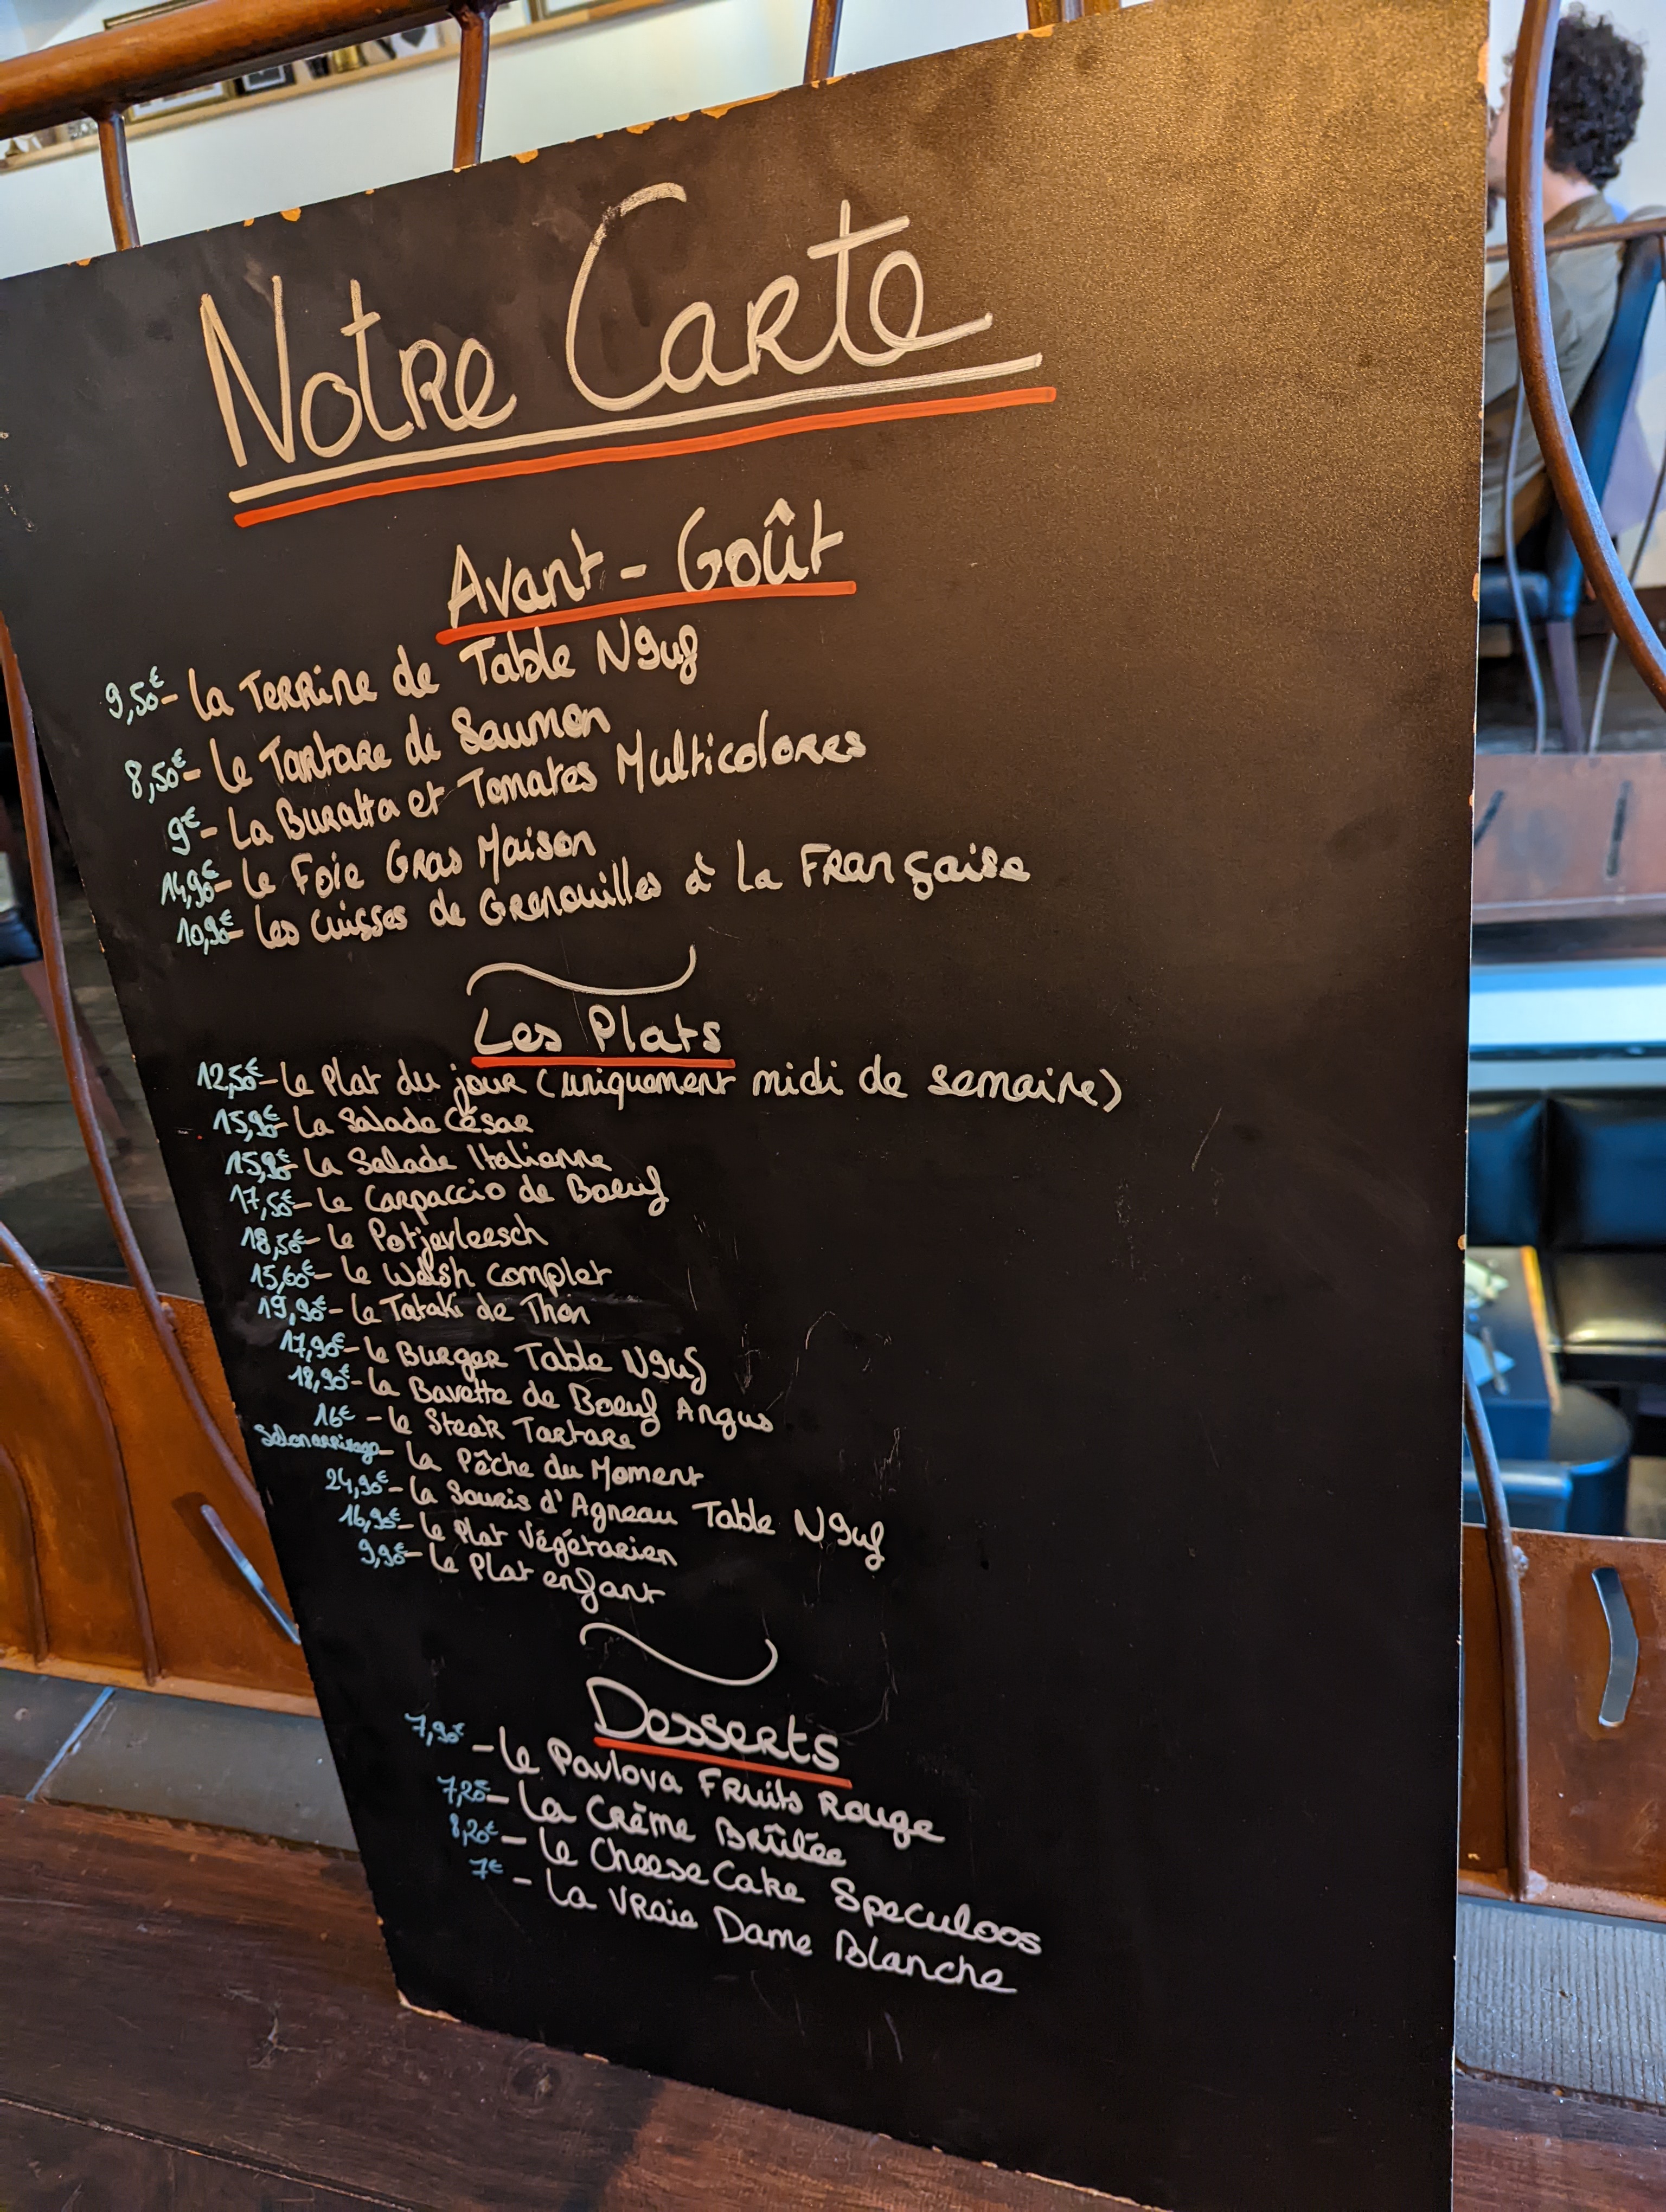 Notre Carte
Avant - Goût
9,50€ - La Terrine de Table N9uf
8,50€ - Le Tartare de Saumon
9€ - La Buratta et Tomates Multicolores
14,90€ - Le Foie Gras Maison
10,90€ - Les Cuisses de Grenouilles à La Française
Les Plats
12,50€ - Le Plat du jour (uniquement midi de semaine)
15,90€ - La Salade César
15,90€ - La Salade Italienne
17,50€ - Le Carpaccio de Boeuf
18,50€ - Le Potjevleesch
15,60€ - Le Welsh Complet
19,90€ - Le Tataki de Thon
17,90€ - Le Burger Table N9uf
18,90€ - La Bavette de Boeuf Angus
16€ - Le Steak Tartare
Selon arrivage - La Pêche du Moment
24,90€ - La Souris d'Agneau Table N9uf
16,90€ - Le Plat Végétarien
9,90€ - Le Plat enfant
Desserts
7,90€ - Le Pavlova Fruits Rouge
7,20€ - La Crème Brûlée
8,20€ - Le Cheese Cake Speculoos
7€ - La Vraie Dame Blanche